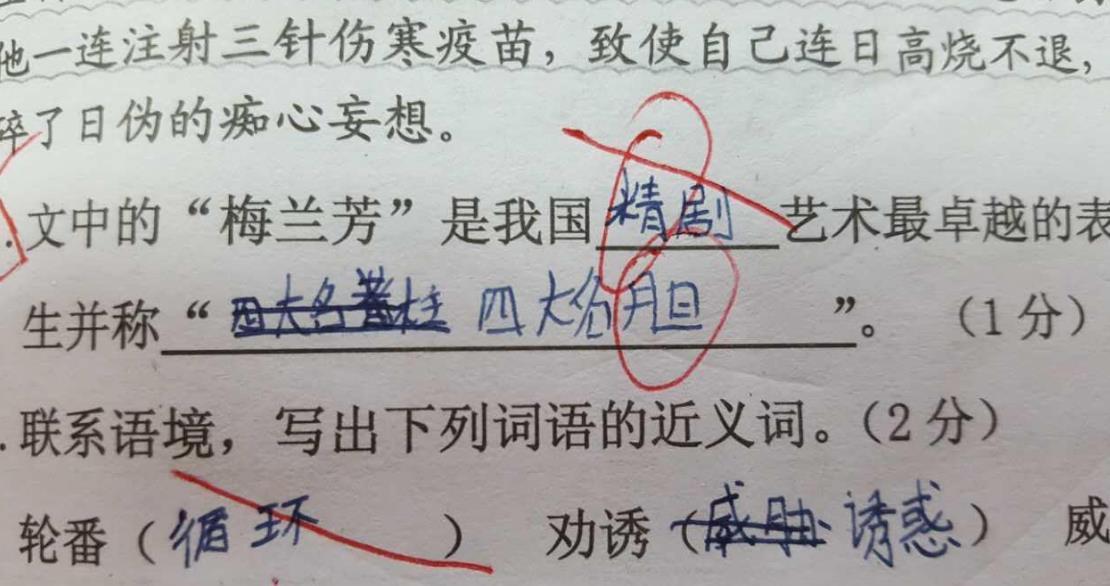 他一连注射三针伤寒疫苗，致使自己连日高烧不退，
碎了日伪的痴心妄想。
.文中的“梅兰芳”是我国精剧艺术最卓越的表
生并称“四大名著柱 四大名胆”。（1分）
.联系语境，写出下列词语的近义词。（2分）
轮番（循环） 劝诱（威胁 诱惑） 威